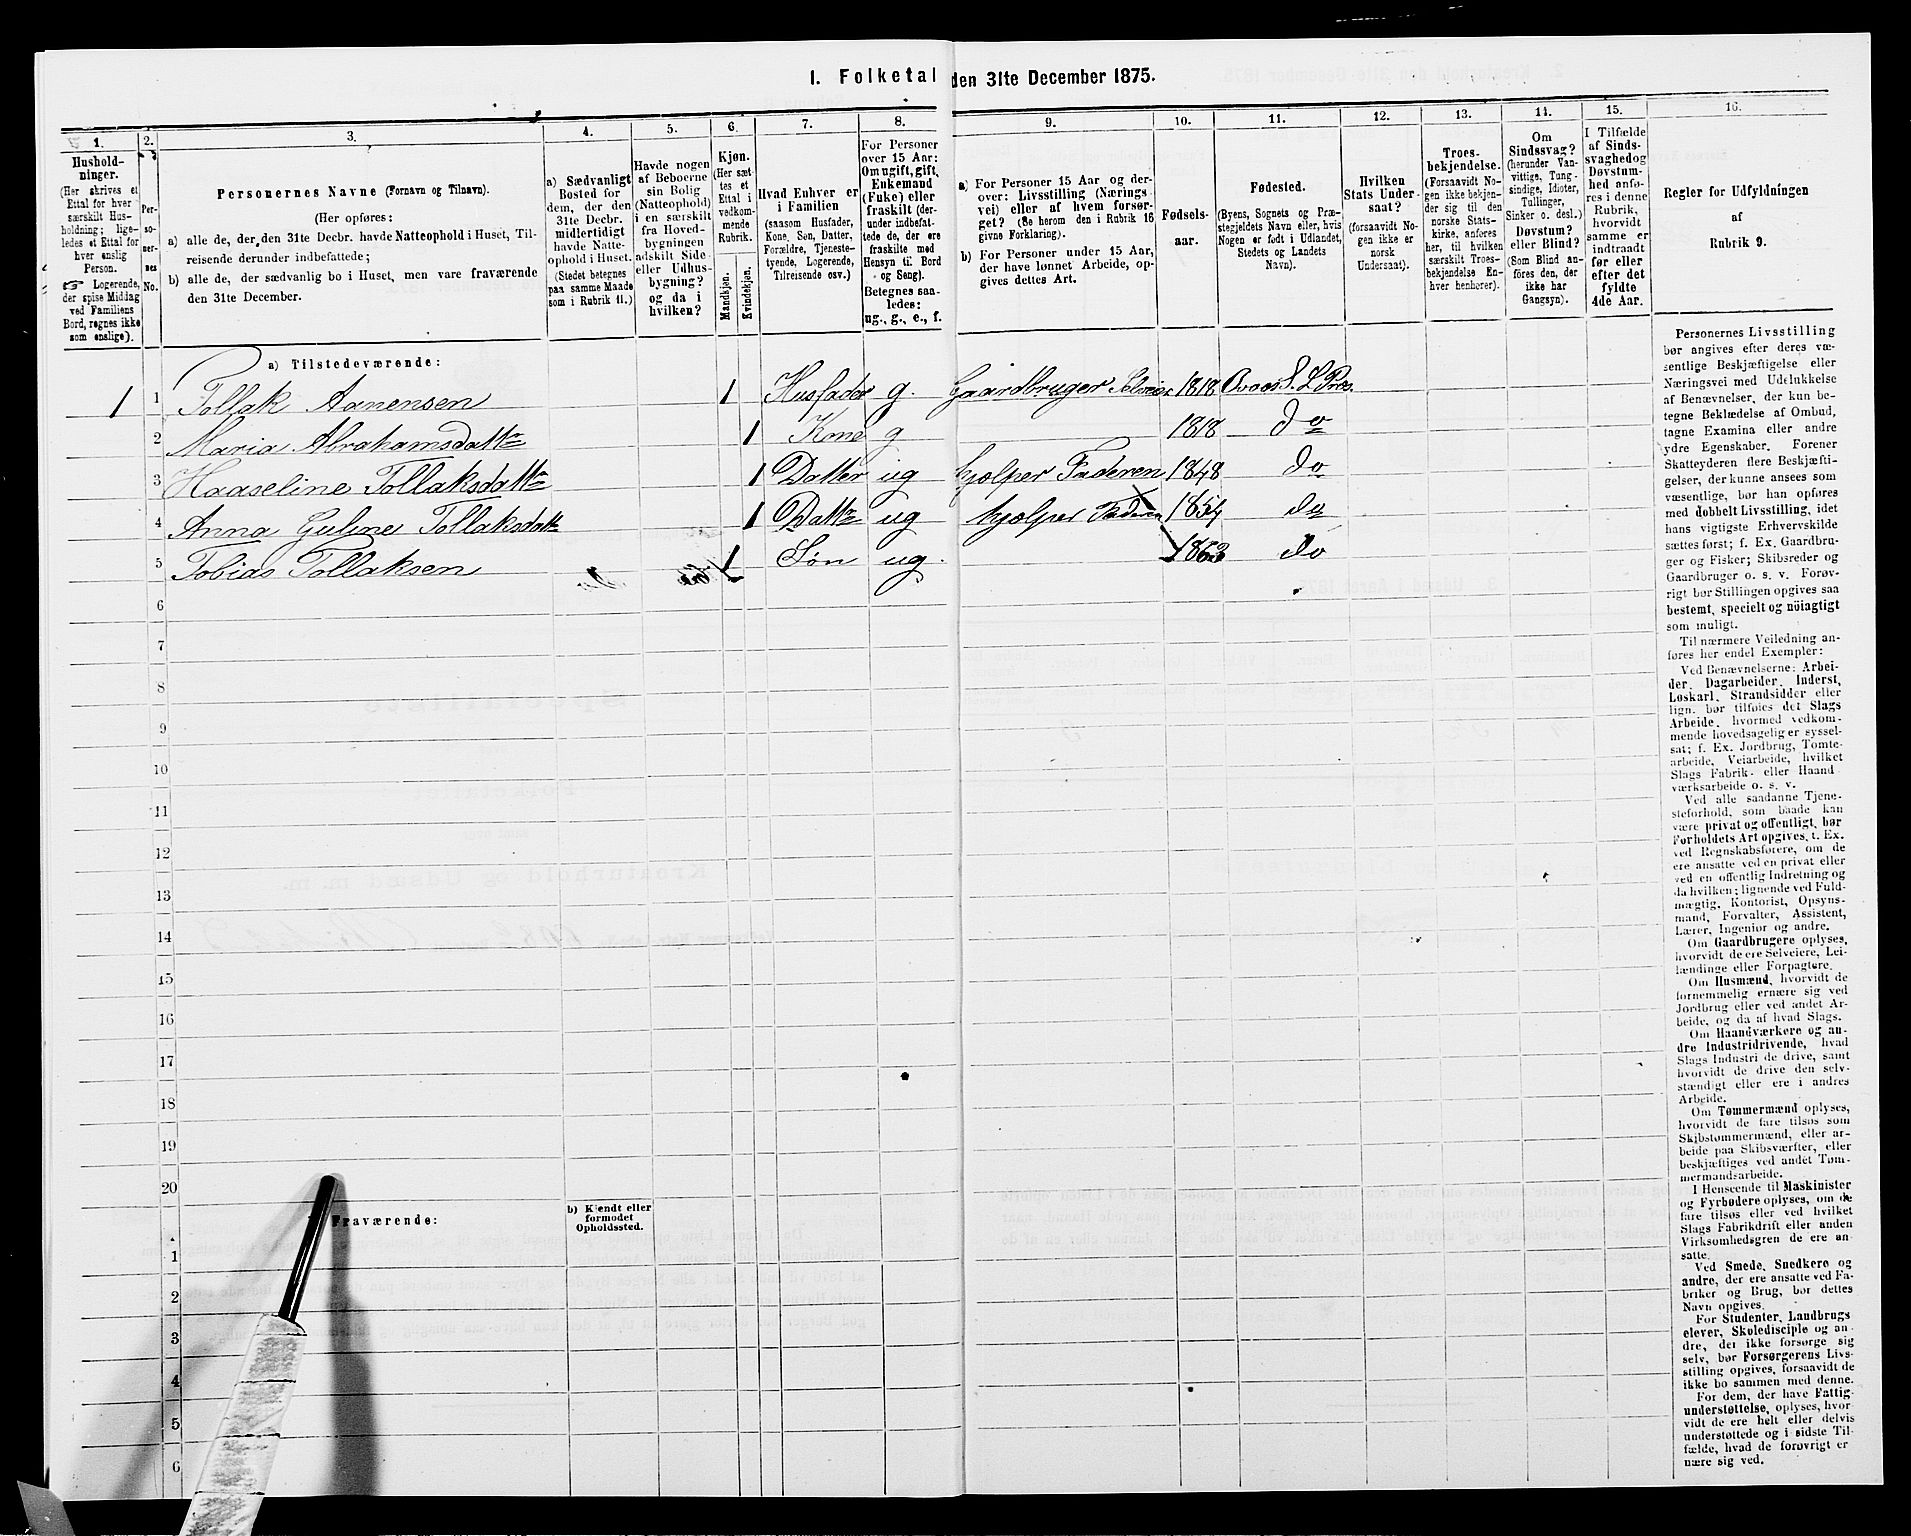 1. Folketal den 31te December 1875.
1. 2. 3. 4. 5. 6. 7. 8. 9. 10. 11. 12. 13. 14. 15. 16.
Hushold-
ninger.
(Her skrives et
Ettal for hver
særskilt Hus-
holdning; lige-
ledes et Ettal for
hver enslig
Person.
☞ Logerende,
der spise Middag
ved Familiens
Bord, regnes ikke
som enslige).
Per-
so-
ner-
nes
No.
Personernes Navne (Fornavn og Tilnavn).
(Her opføres:
a) alle de, der den 31te Decbr. havde Natteophold i Huset, Til-
reisende derunder indbefattede;
b) alle de, der sædvanlig bo i Huset, men vare fraværende
den 31te December.
a) Sædvanligt
Bosted for
dem, der den
31te Decbr.
midlertidigt
havde Natte-
ophold i Huset.
(Stedet betegnes
paa samme Maade
som i Rubrik 11.)
Havde nogen
af Beboerne
sin Bolig
(Natteophold)
i en særskilt
fra Hoved-
bygningen
adskilt Side-
eller Udhus-
bygning?
og da i
hvilken?
Kjøn.
(Her sæt-
tes et
Ettal i
vedkom-
mende
Rubrik.
Mandkjøn.
Kvindekjøn.
Hvad Enhver er
i Familien
(saasom Husfader,
Kone, Søn, Datter,
Forældre, Tjeneste-
tyende, Logerende,
Tilreisende osv.)
For Personer
over 15 Aar:
Om ugift, gift,
Enkemand
(Fuke) eller
fraskilt (der-
under indbefat-
tede de, der ere
fraskilte med
Hensyn til Bord
og Seng).
Betegnes saa-
ledes:
ug., g., e., f.
a) For Personer 15 Aar og der-
over: Livsstilling (Nærings-
vei) eller af hvem forsør-
get? (Se herom den i Rubrik 16
givne Forklaring).
b) For Personer under 15 Aar,
der have lønnet Arbeide, op-
gives dettes Art.
Fødsels-
aar.
Fødested.
(Byens, Sognets og Præ-
stegjeldets Navn eller, hvis
Nogen er født i Udlandet,
Stedets og Landets
Navn).
Hvilken
Stats Under-
saat?
(forsaavidt No-
gen ikke er
norsk
Undersaat).
Troes-
bekjendelse.
(Forsaavidt No-
gen ikke bekjen-
der sig til den
norske Stats-
kirke, anføres
her, til hvilken
særskilt Troes-
bekjendelse En-
hver henhører).
Om
Sindssvag?
(herunder Van-
vittige, Tung-
sindige, Idioter,
Tullinger,
Sinker o. desl.)
Døvstum?
eller Blind?
(Som Blind an-
føres den, der
ikke har
Gangsyn).
I Tilfælde
af Sinds-
svaghedog
Døvstum-
hed anfø-
res i denne
Rubrik,
hvorvidt
samme er
indtraadt
før eller
efter det
fyldte
4de Aar.
Regler for Udfyldningen
af
Rubrik 9.
a) Tilstedeværende:
1 1 Tollak Aanensen 1 Husfader g. Gaardbruger Selveier 1818
2 Maria Abrahamsdattr 1 Kone g 1818 do
3 Haaseline Tollaksdattr 1 Datter ug hjælper Faderen 1848 do
4 Anna Guline Tollaksdattr 1 Dattr ug hjælper Faderen 1854 do
5 Tobias Tollaksen 1 Søn ug. 1863 do
6
7
8
9
10
11
12
13
14
15
16
17
18
19
20
Fraværende:
b) Kjendt eller
formodet
Opholdssted.
1
2
3
4
5
6
Personernes Livsstilling
bør angives efter deres væ-
sentlige Beskjæftigelse eller
Næringsvei med Udelukkelse
af Benævnelser, der kun be-
tegne Beklædelse af Ombud,
tagne Examina eller andre
ydre Egenskaber. Forener
Skatteyderen flere Beskjæfti-
gelser, der kunne ansees som
væsentlige, bør han opføres
med dobbelt Livsstilling, idet
hans vigtigste Erhvervskilde
sættes først; f. Ex. Gaardbru-
ger og Fisker; Skibsreder og
Gaardbruger o. s. v. Forøv-
rigt bør Stillingen opgives saa
bestemt, specielt og nöiagtigt
som muligt.
Til nærmere Veiledning an-
føres her endel Exempler:
Ved Benævnelserne: Arbei-
der, Dagarbeider, Inderst,
Løskarl, Strandsidder eller
lign. bør tilføies det Slags
Arbeide, hvormed vedkom-
mende hovedsagelig er syssel-
sat; f. Ex. Jordbrug, Tomte-
arbeide, Veiarbeide, hvilket
Slags Fabrik- eller Haand-
værksarbeide o. s. v.
Ved alle saadanne Tjene-
steforhold, som baade kan
være privat og offentligt, bør
Forholdets Art opgives, t. Ex.
ved Regnskabsførere, om de
ere ansatte ved en privat eller
ved en offentlig Indretning og
da hvilken; lignende ved Fuld-
mægtig, Kontorist, Opsyns-
mand, Forvalter, Assistent,
Lærer, Ingeniør og andre.
Om Gaardbrugere oplyses,
hvorvidt de ere Selveiere, Lei-
lændinge eller Forpagtere.
Om Husmænd, hvorvidt de
fornemmelig ernære sig ved
Jordbrug eller ved andet Ar-
beide, og da af hvad Slags.
Om Haandværkere og an-
dre Industridrivende, hvad
Slags Industri de drive, samt
hvorvidt de drive den selv-
stændigt eller ere i andres
Arbeide.
Om Tømmermænd oplyses,
hvorvidt de fare tilsøs som
Skibstømmermænd, eller ar-
beide paa Skibsværfter, eller
beskjæftiges ved andet Tøm-
mermandsarbeide.
I Henseende til Maskinister
og Fyrbødere oplyses, om de
fare tilsøs eller ved hvilket
Slags Fabrikdrift eller anden
Virksomhedsgren de ere an-
satte.
Ved Smede, Snedkere og
andre, der ere ansatte ved Fa-
briker og Brug, bør dettes
Navn opgives.
For Studenter, Landbrugs-
elever, Skoledisciple og an-
dre, der ikke forsørge sig
selv, bør Forsørgerens Livs-
stilling opgives, forsaavidt de
ikke bo sammen med denne.
For dem, der have Fattig-
understøttelse, oplyses, hvor-
vidt de ere helt eller delvis
understøttede og i sidste Til-
fælde, hvad de forøvrigt er-
nære sig ved.